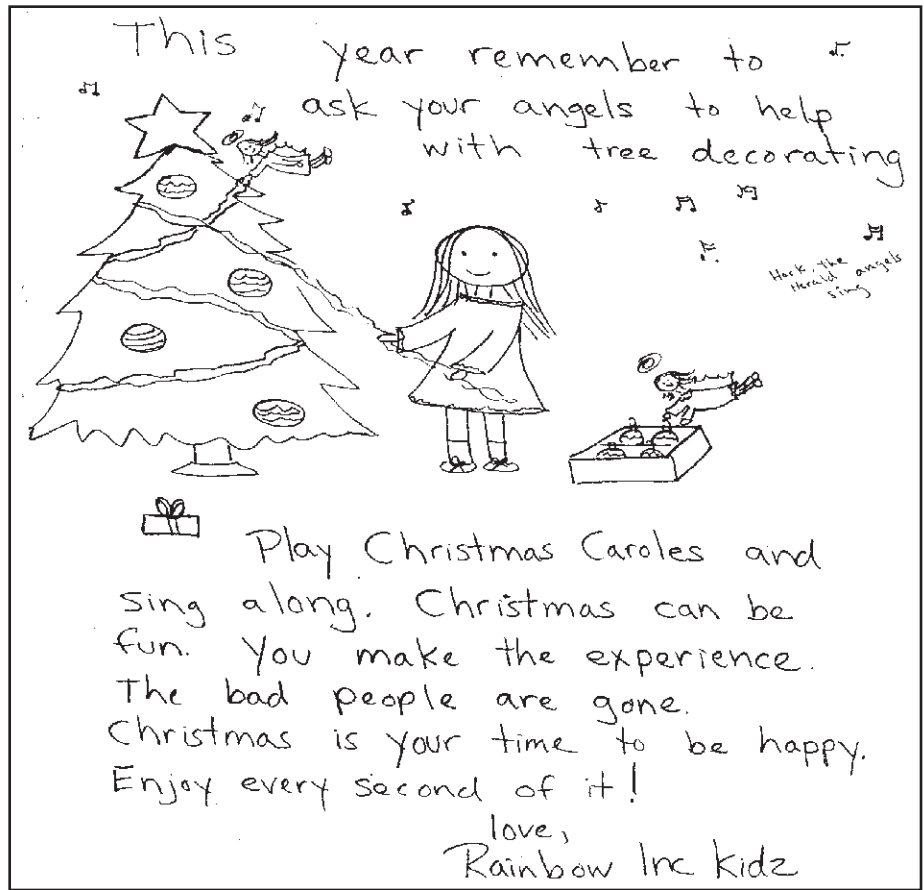 This year remember to
ask your angels to help
with tree decorating
Hark the
Herald angels
sing
Play Christmas Caroles and
sing along. Christmas can be
fun. You make the experience.
The bad people are gone.
Christmas is your time to be happy.
Enjoy every second of it!
love,
Rainbow Inc Kidz